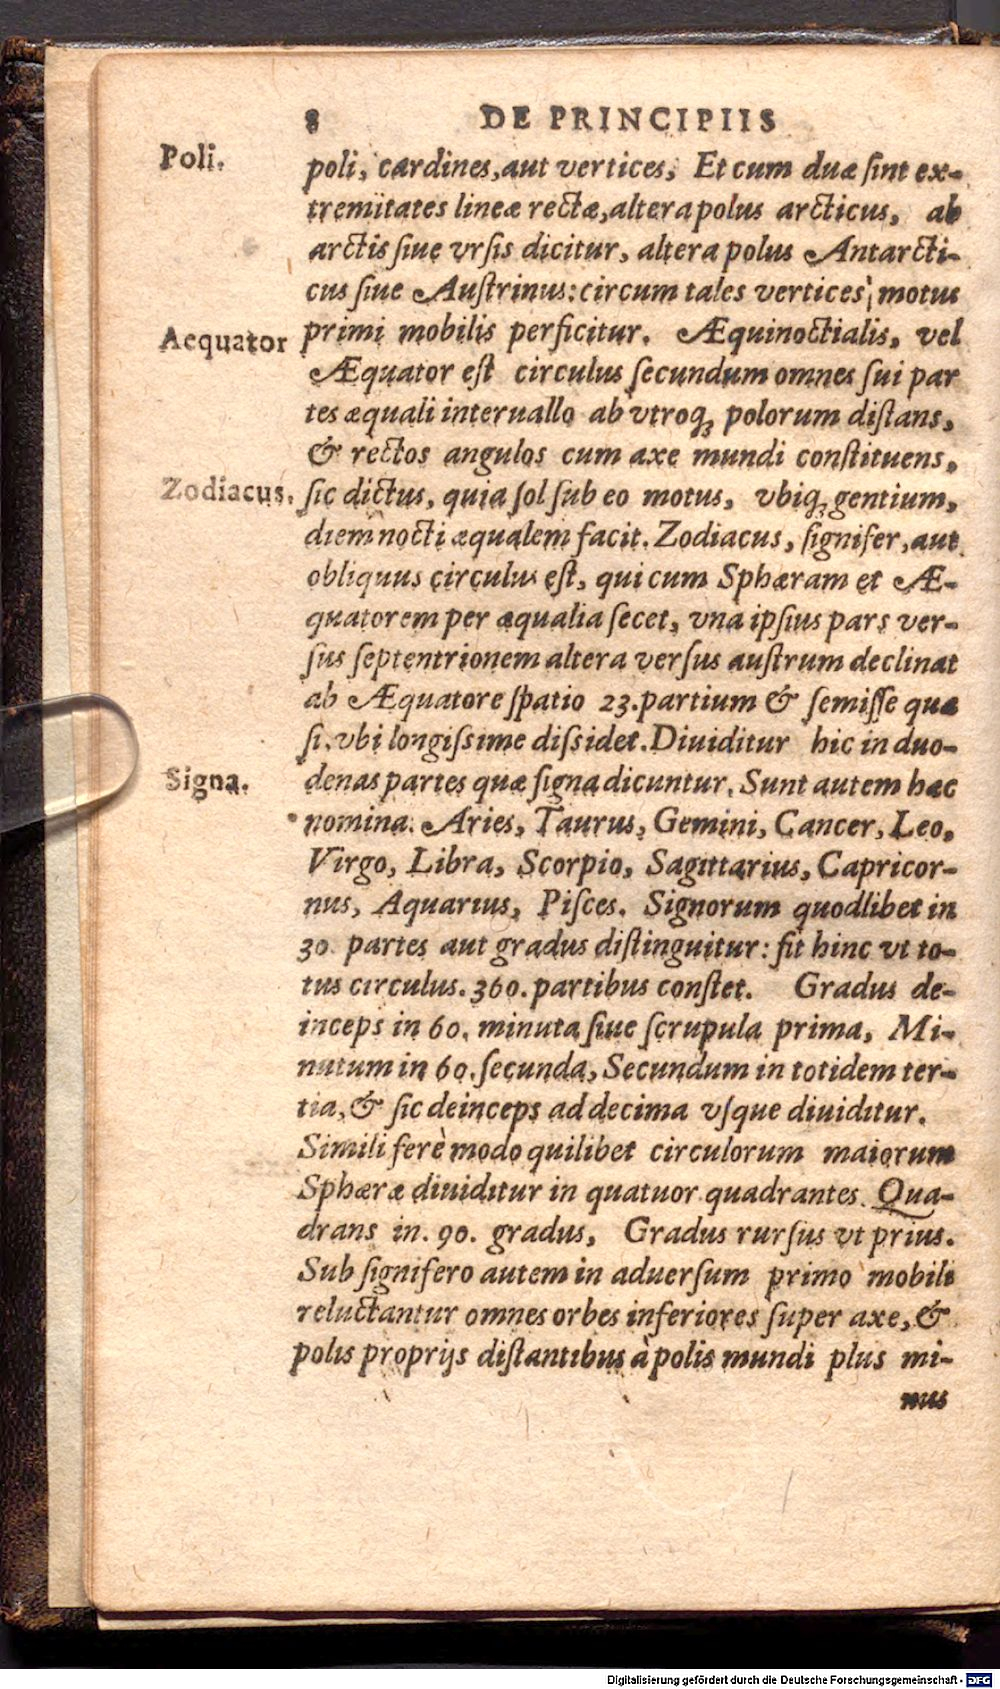 8 DE PRINCIPIIS
Poli.
poli, cardines, aut vertices, Et cum duæ ſint ex-
tremitates lineæ rectæ, altera polus arcticus, ab
arctis ſiue vrſis dicitur, altera polus Antarcti-
cus ſiue Auſtrinus: circum tales vertices, motus
Aequator
primi mobilis perficitur. Æquinoctialis, vel
Æquator eſt circulus ſecundum omnes ſui par
tes æquali interuallo ab vtroq; polorum diſtans,
& rectos angulos cum axe mundi conſtituens,
Zodiacus.
ſic dictus, quia ſol ſub eo motus, vbiq; gentium,
diem nocti æqualem facit. Zodiacus, ſignifer, aut
obliquus circulus eſt, qui cum Sphæram et Æ-
quatorem per æqualia ſecet, vna ipſius pars ver-
ſus ſeptentrionem altera verſus auſtrum declinat
ab Æquatore ſpatio 23. partium & ſemiſſe qua
ſi, vbi longiſsime diſsidet. Diuiditur hic in duo-
Signa.
denas partes quæ ſigna dicuntur. Sunt autem hæc
nomina. Aries, Taurus, Gemini, Cancer, Leo,
Virgo, Libra, Scorpio, Sagittarius, Capricor-
nus, Aquarius, Piſces. Signorum quodlibet in
30. partes aut gradus diſtinguitur: fit hinc vt to-
tus circulus. 360. partibus conſtet. Gradus de-
inceps in 60. minuta ſiue ſcrupula prima, Mi-
nutum in 60. ſecunda, Secundum in totidem ter-
tia, & ſic deinceps ad decima vſque diuiditur.
Simili ferè modo quilibet circulorum maiorum
Sphæræ diuiditur in quatuor quadrantes. Qua-
drans in. 90. gradus, Gradus rurſus vt prius.
Sub ſignifero autem in aduerſum primo mobili
reluctantur omnes orbes inferiores ſuper axe, &
polis proprijs diſtantibus à polis mundi plus mi-
nus
Digitalisierung gefördert durch die Deutsche Forschungsgemeinschaft - DFG